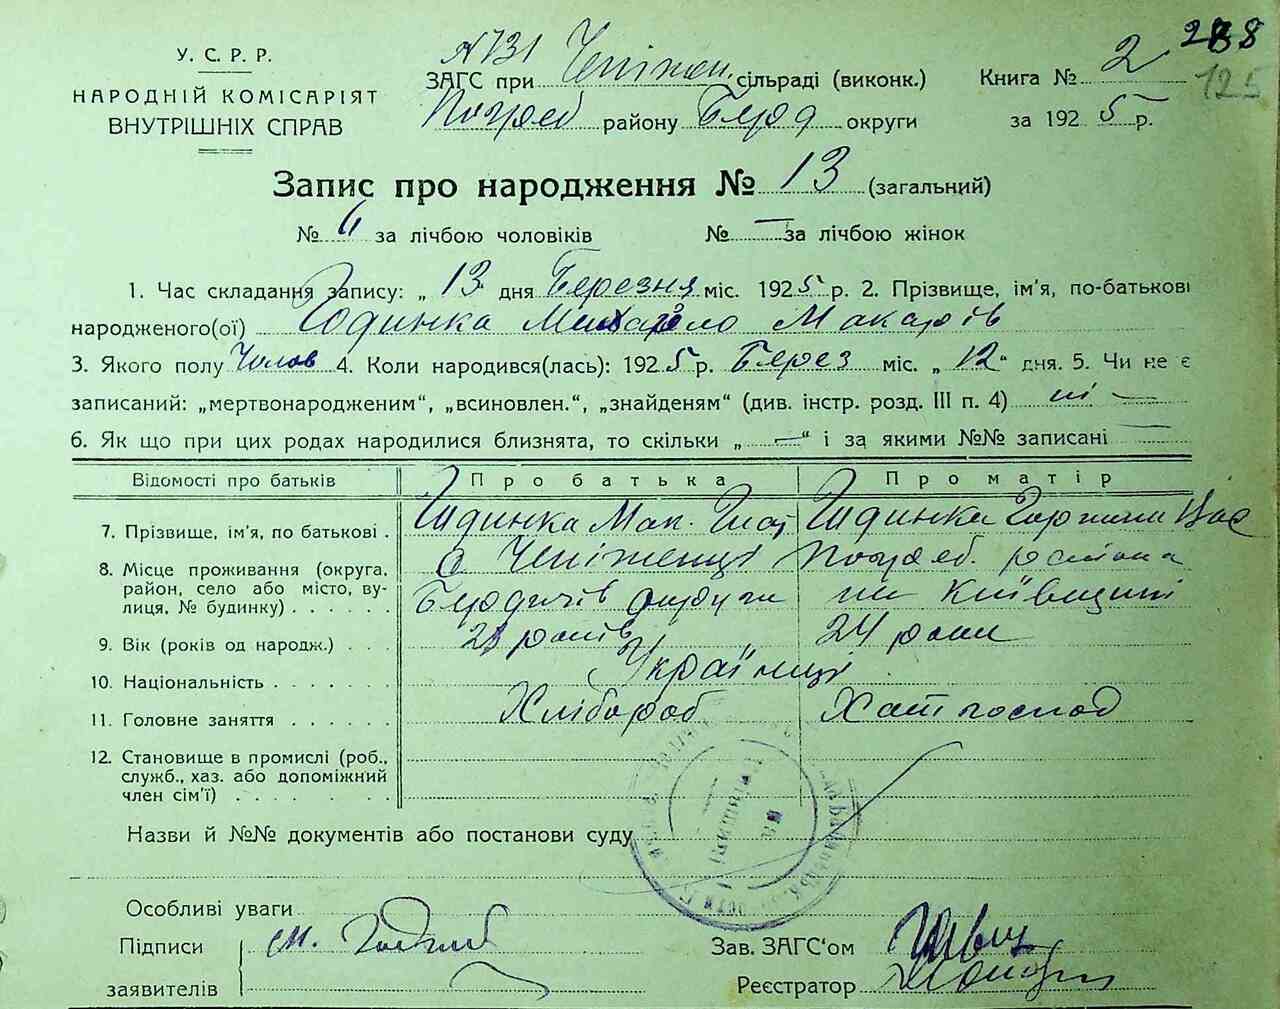 У. С. Р. Р.
НАРОДНІЙ КОМІСАРІЯТ
ВНУТРІШНІХ СПРАВ
№ 731
ЗАГС при Чепіжен. сільраді (виконк.)
Погреб району Берд округи
Книга № 2
за 1925 р.
288
125
Запис про народження № 13 (загальний)
№ 6 за лічбою чоловіків № — за лічбою жінок
1. Час складання запису: „ 13 дня Березня міс. 1925 р. 2. Прізвище, ім'я, по-батькові
народженого(ої) Годинка Михайло Макарів
3. Якого полу Чолов 4. Коли народився(лась): 1925 р. Берез міс. „ 12 “ дня. 5. Чи не є
записаний: „мертвонародженим“, „всиновлен.“, „знайденям“ (див. інстр. розд. III п. 4) ні —
6. Як що при цих родах народилися близнята, то скільки „ — “ і за якими №№ записані —
Відомості про батьків Про батька Про матір
7. Прізвище, ім'я, по батькові . Годинка Мак. Годинка
8. Місце проживання (округа, район, село або місто, вулиця, № будинку) . . . . . с Чепіженці Погреб. района
Бердичів округи на Київщині
9. Вік (років од народж.) . . . років 24 роки
10. Національність . . . . . . . Українці
11. Головне заняття . . . . . . Хлібороб Хат господ
12. Становище в промислі (роб., служб., хаз. або допоміжний член сім'ї) . . . . . . . . .
Назви й №№ документів або постанови суду
Особливі уваги
Підписи заявителів М. Годинка
Зав. ЗАГС'ом
Реєстратор